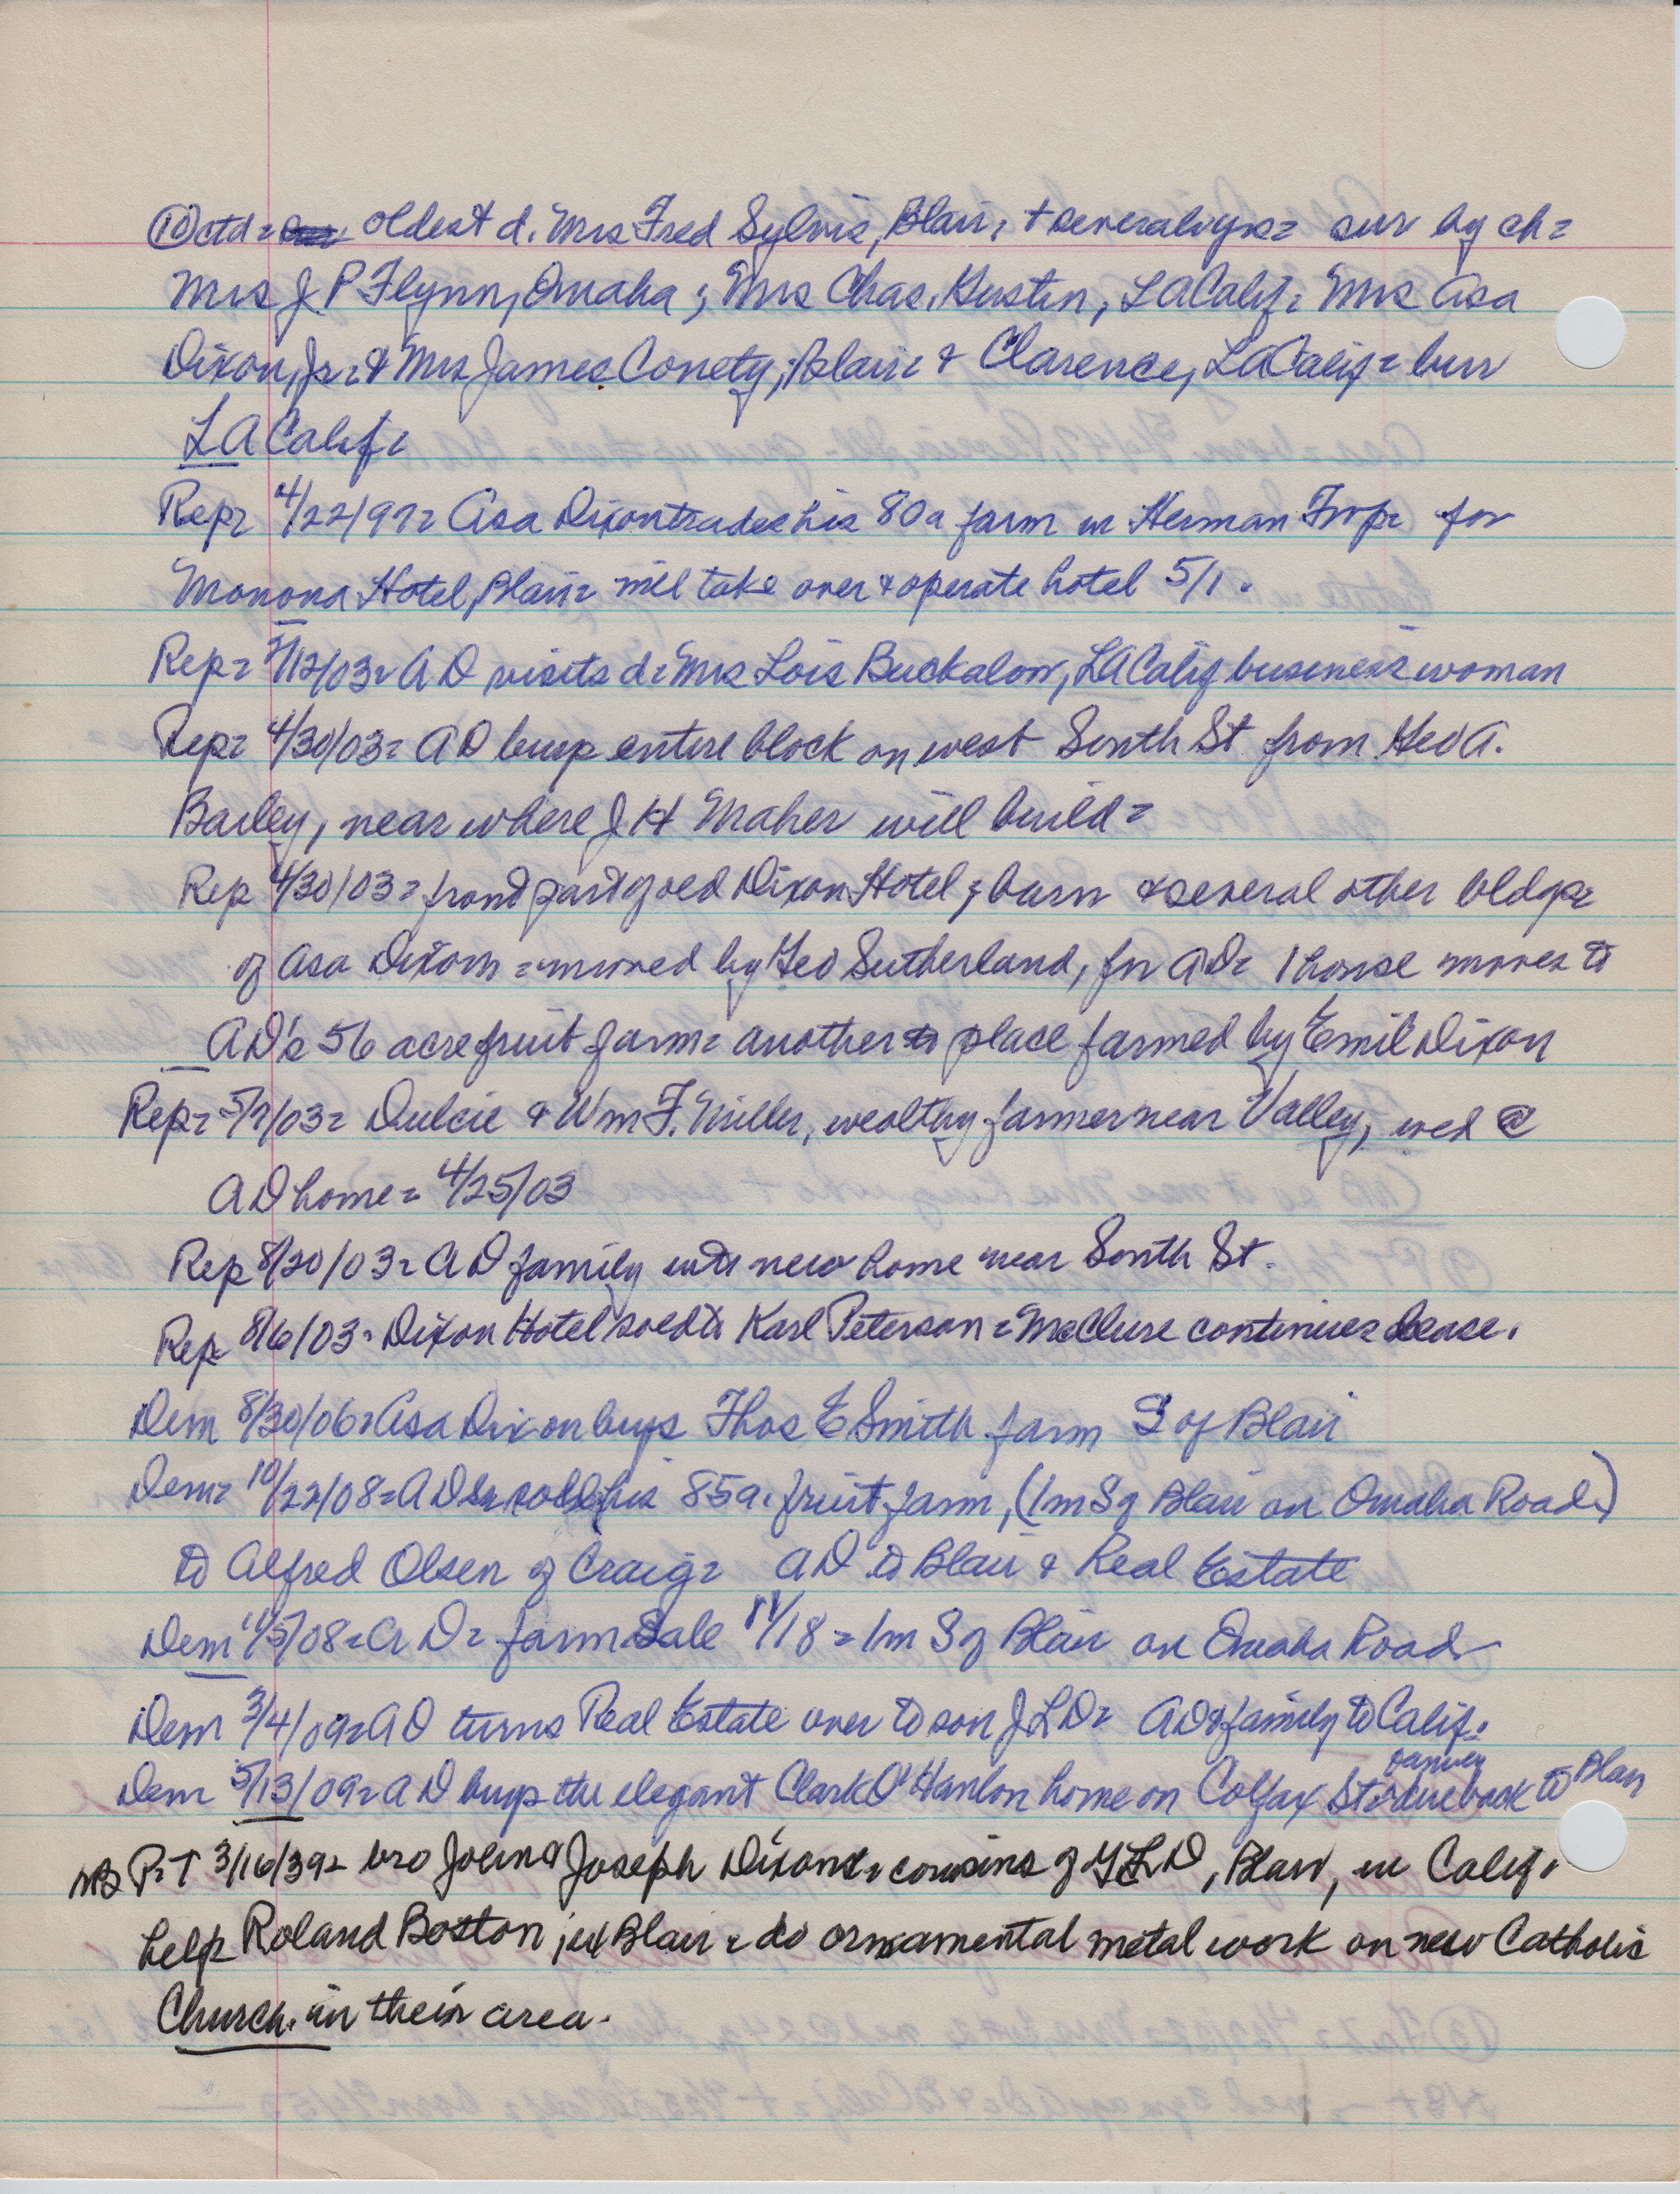 ⑩ ctd = oldest d. Mrs Fred Sylvis, Blair, + several yrs = sur by ch =
Mrs J P Flynn, Omaha; Mrs Chas. Gustin, LA Calif = Mrs Asa
Dixon, Jr = & Mrs James Conety, Blair = & Clarence, LA Calif = bur
LA Calif =
Rep = 4/22/97 = Asa Dixon trades his 80a farm in Herman Twp = for
Monona Hotel, Blair = will take over & operate hotel 5/1.
Rep = /12/03 = AD visits d = Mrs Lois Buckalow, LA Calif business woman
Rep = 4/30/03 = AD buys entire block on west South St from Geo A.
Bailey, near where J H Maher will build =
Rep 4/30/03 = front part of old Dixon Hotel; barn & several other bldgs =
of Asa Dixon = moved by Geo Sutherland, for AD = 1 house moves to
AD's 56 acre fruit farm = another place farmed by Emil Dixon
Rep = 5/7/03 = Dulcie & Wm F. Miller, wealthy farmer near Valley, wed @
AD home = 4/25/03
Rep 8/20/03 = AD family into new home near South St.
Rep = 8/6/03 = Dixon Hotel sold to Karl Peterson = McClure continues lease.
Dem 8/30/06 = Asa Dixon buys Thos E Smith farm S of Blair
Dem = 10/22/08 = AD sold his 85a. fruit farm, (1m S of Blair on Omaha Road)
to Alfred Olsen of Craig = AD to Blair & Real Estate
Dem 11/5/08 = AD = farm Sale 11/18 = 1m S of Blair on Omaha Road
Dem 3/4/09 = AD turns Real Estate over to son J L D = AD & family to Calif.
Dem 5/13/09 = AD buys the elegant Clark O'Hanlon home on Colfax St & due back to Blair
P-T 3/16/39 = bro John & Joseph Dixon = cousins of , Blair, in Calif.
help Roland Boston, Blair = do ornamental metal work on new Catholic
Church. in their area.